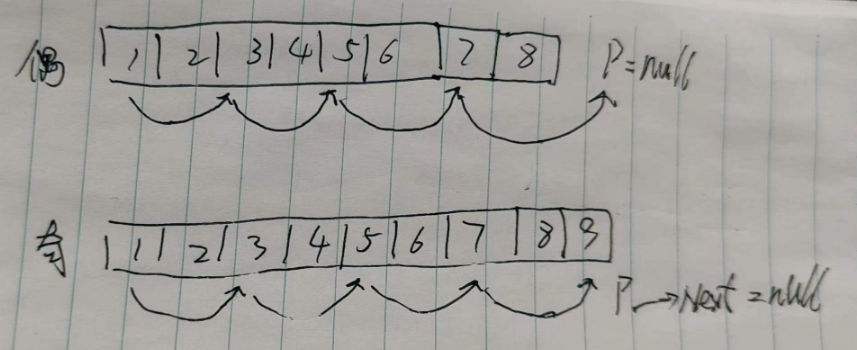 偶 1 2 3 4 5 6 7 8 P=null
奇 1 2 3 4 5 6 7 8 9
P→Next=null